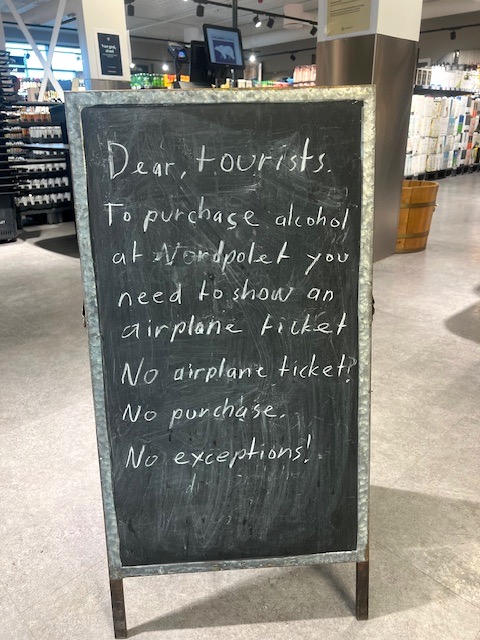 Dear, tourists.
To purchase alcohol
at Nordpolet you
need to show an
airplane ticket
No airplane ticket?
No purchase.
No exceptions!